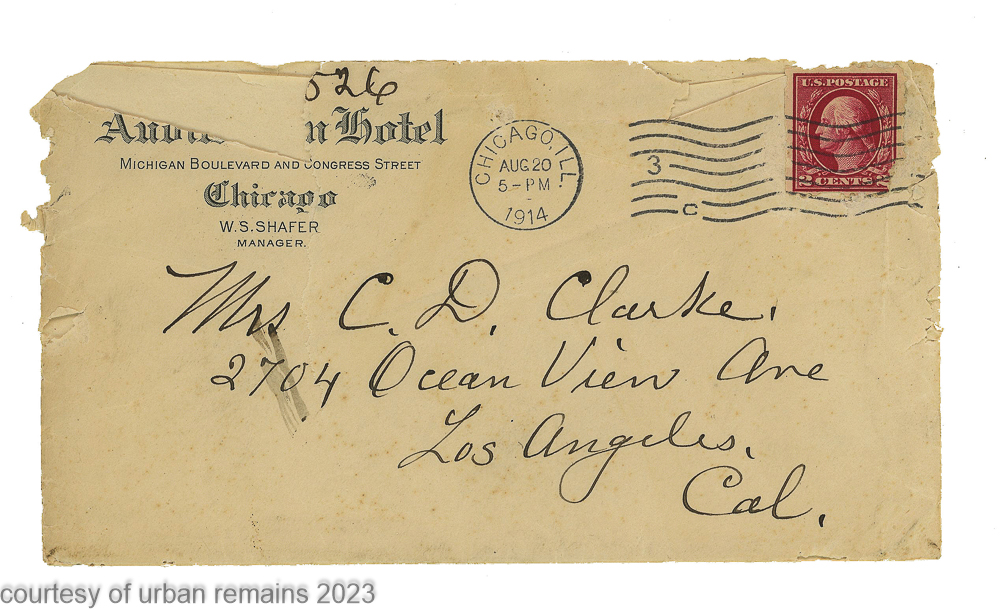 526
Hotel
MICHIGAN BOULEVARD AND CONGRESS STREET
Chicago
W.S. SHAFER
MANAGER.
CHICAGO, ILL.
AUG 20
5-PM
1914
3
C
U.S. POSTAGE
2 CENTS 2
Mrs C. D. Clarke.
2704 Ocean View Ave
Los Angeles.
Cal.
courtesy of urban remains 2023